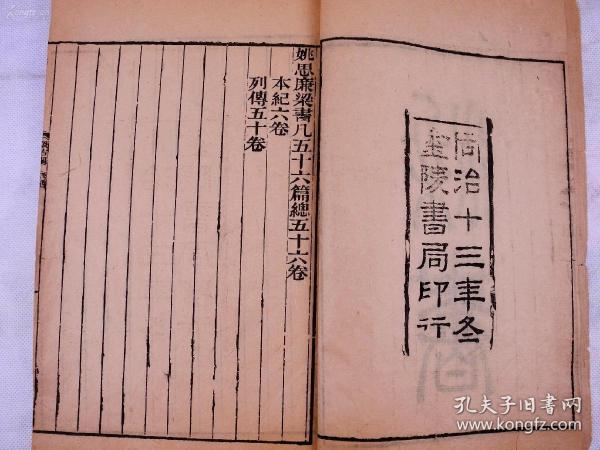 同治十三年冬
金陵書局印行
姚思廉梁書凡五十六篇總五十六卷
本紀六卷
列傳五十卷
孔夫子旧书网